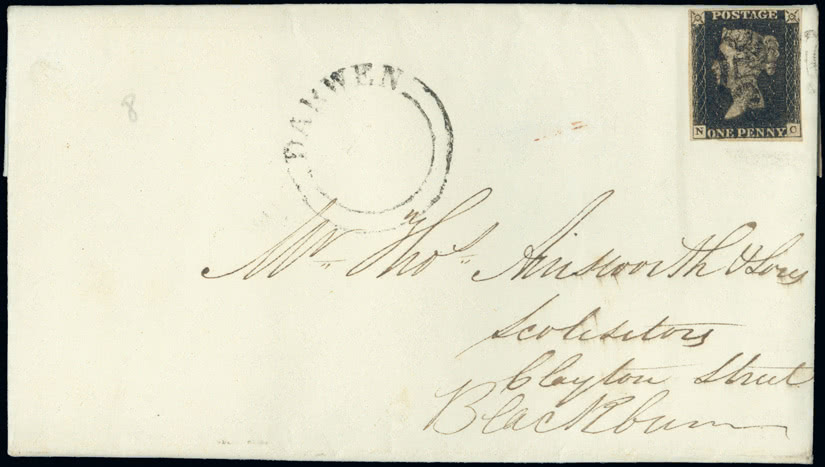 POSTAGE
N O
ONE PENNY
DARWEN
8
Mr. Thos. Ainsworth & Sons
Scolisitors
Clayton Street
Blackburn